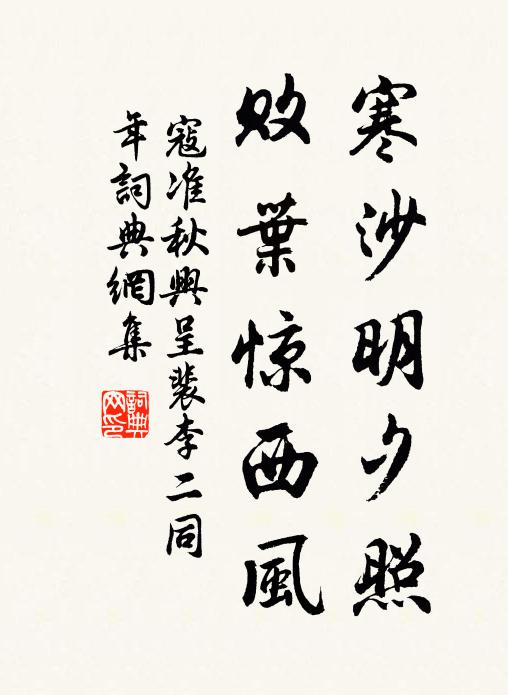 寒沙明夕照
败葉惊西風
寇准秋興呈裴李二同
年詞典網集
詞典网印